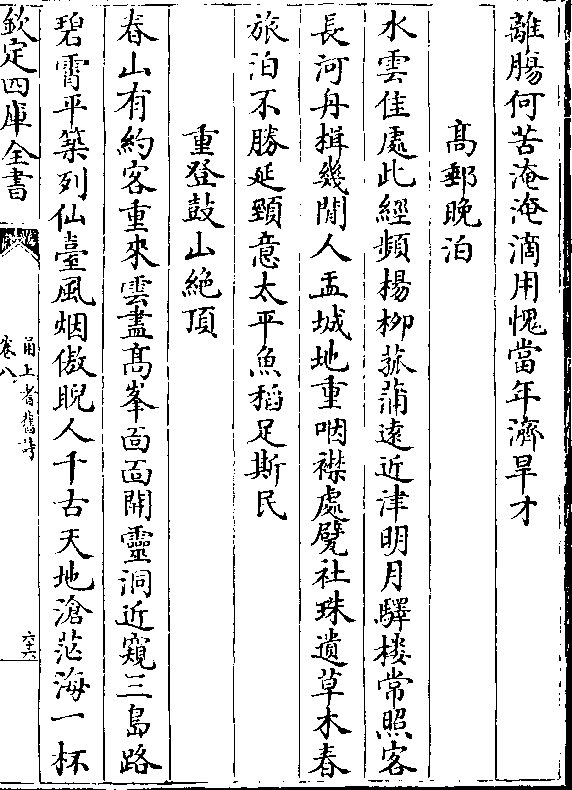 離腸何苦淹淹滴用愧當年濟旱才
高郵晚泊
水雲佳處此經頻楊柳菰蒲遠近津明月驛樓常照客
長河舟揖幾閒人盂城地重咽襟處甓社珠遺草木春
旅泊不勝延頸意太平魚稻足斯民
重登鼓山絶頂
春山有約客重來雲盡髙峯面面開靈洞近窺三島路
碧霄平築列仙臺風烟傲睨人千古天地滄茫海一杯
欽定四庫全書
甬上耆舊詩
卷八
六六